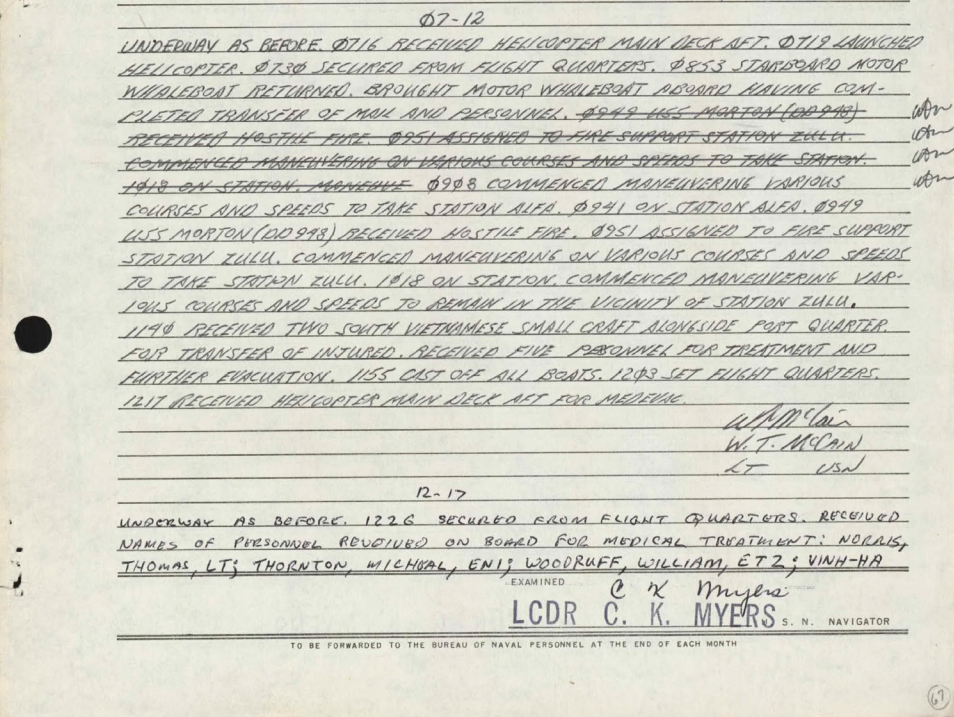 Ø7-12
UNDERWAY AS BEFORE. Ø716 RECEIVED HELICOPTER MAIN DECK AFT. Ø719 LAUNCHED
HELICOPTER. Ø73Ø SECURED FROM FLIGHT QUARTERS. Ø853 STARBOARD MOTOR
WHALEBOAT RETURNED. BROUGHT MOTOR WHALEBOAT ABOARD HAVING COM-
PLETED TRANSFER OF MAIL AND PERSONNEL. Ø949 USS MORTON (DD 948)
RECEIVED HOSTILE FIRE. Ø951 ASSIGNED TO FIRE SUPPORT STATION ZULU.
COMMENCED MANEUVERING ON VARIOUS COURSES AND SPEEDS TO TAKE STATION.
1Ø18 ON STATION. MANEUVE Ø9Ø8 COMMENCED MANEUVERING VARIOUS
COURSES AND SPEEDS TO TAKE STATION ALFA. Ø941 ON STATION ALFA. Ø949
USS MORTON (DD 948) RECEIVED HOSTILE FIRE. Ø951 ASSIGNED TO FIRE SUPPORT
STATION ZULU. COMMENCED MANEUVERING ON VARIOUS COURSES AND SPEEDS
TO TAKE STATION ZULU. 1Ø18 ON STATION. COMMENCED MANEUVERING VAR-
IOUS COURSES AND SPEEDS TO REMAIN IN THE VICINITY OF STATION ZULU.
114Ø RECEIVED TWO SOUTH VIETNAMESE SMALL CRAFT ALONGSIDE PORT QUARTER.
FOR TRANSFER OF INJURED. RECEIVED FIVE PERSONNEL FOR TREATMENT AND
FURTHER EVACUATION. 1155 CAST OFF ALL BOATS. 12Ø3 SET FLIGHT QUARTERS.
1217 RECEIVED HELICOPTER MAIN DECK AFT FOR MEDEVAC.
W T McCain
W. T. McCAIN
LT USN
12-17
UNDERWAY AS BEFORE. 1226 SECURED FROM FLIGHT QUARTERS. RECEIVED
NAMES OF PERSONNEL RECEIVED ON BOARD FOR MEDICAL TREATMENT: NORRIS,
THOMAS, LT; THORNTON, MICHEAL, EN1; WOODRUFF, WILLIAM, ET2; VINH-HA
EXAMINED
C K Myers
LCDR C. K. MYERS S. N. NAVIGATOR
TO BE FORWARDED TO THE BUREAU OF NAVAL PERSONNEL AT THE END OF EACH MONTH
67